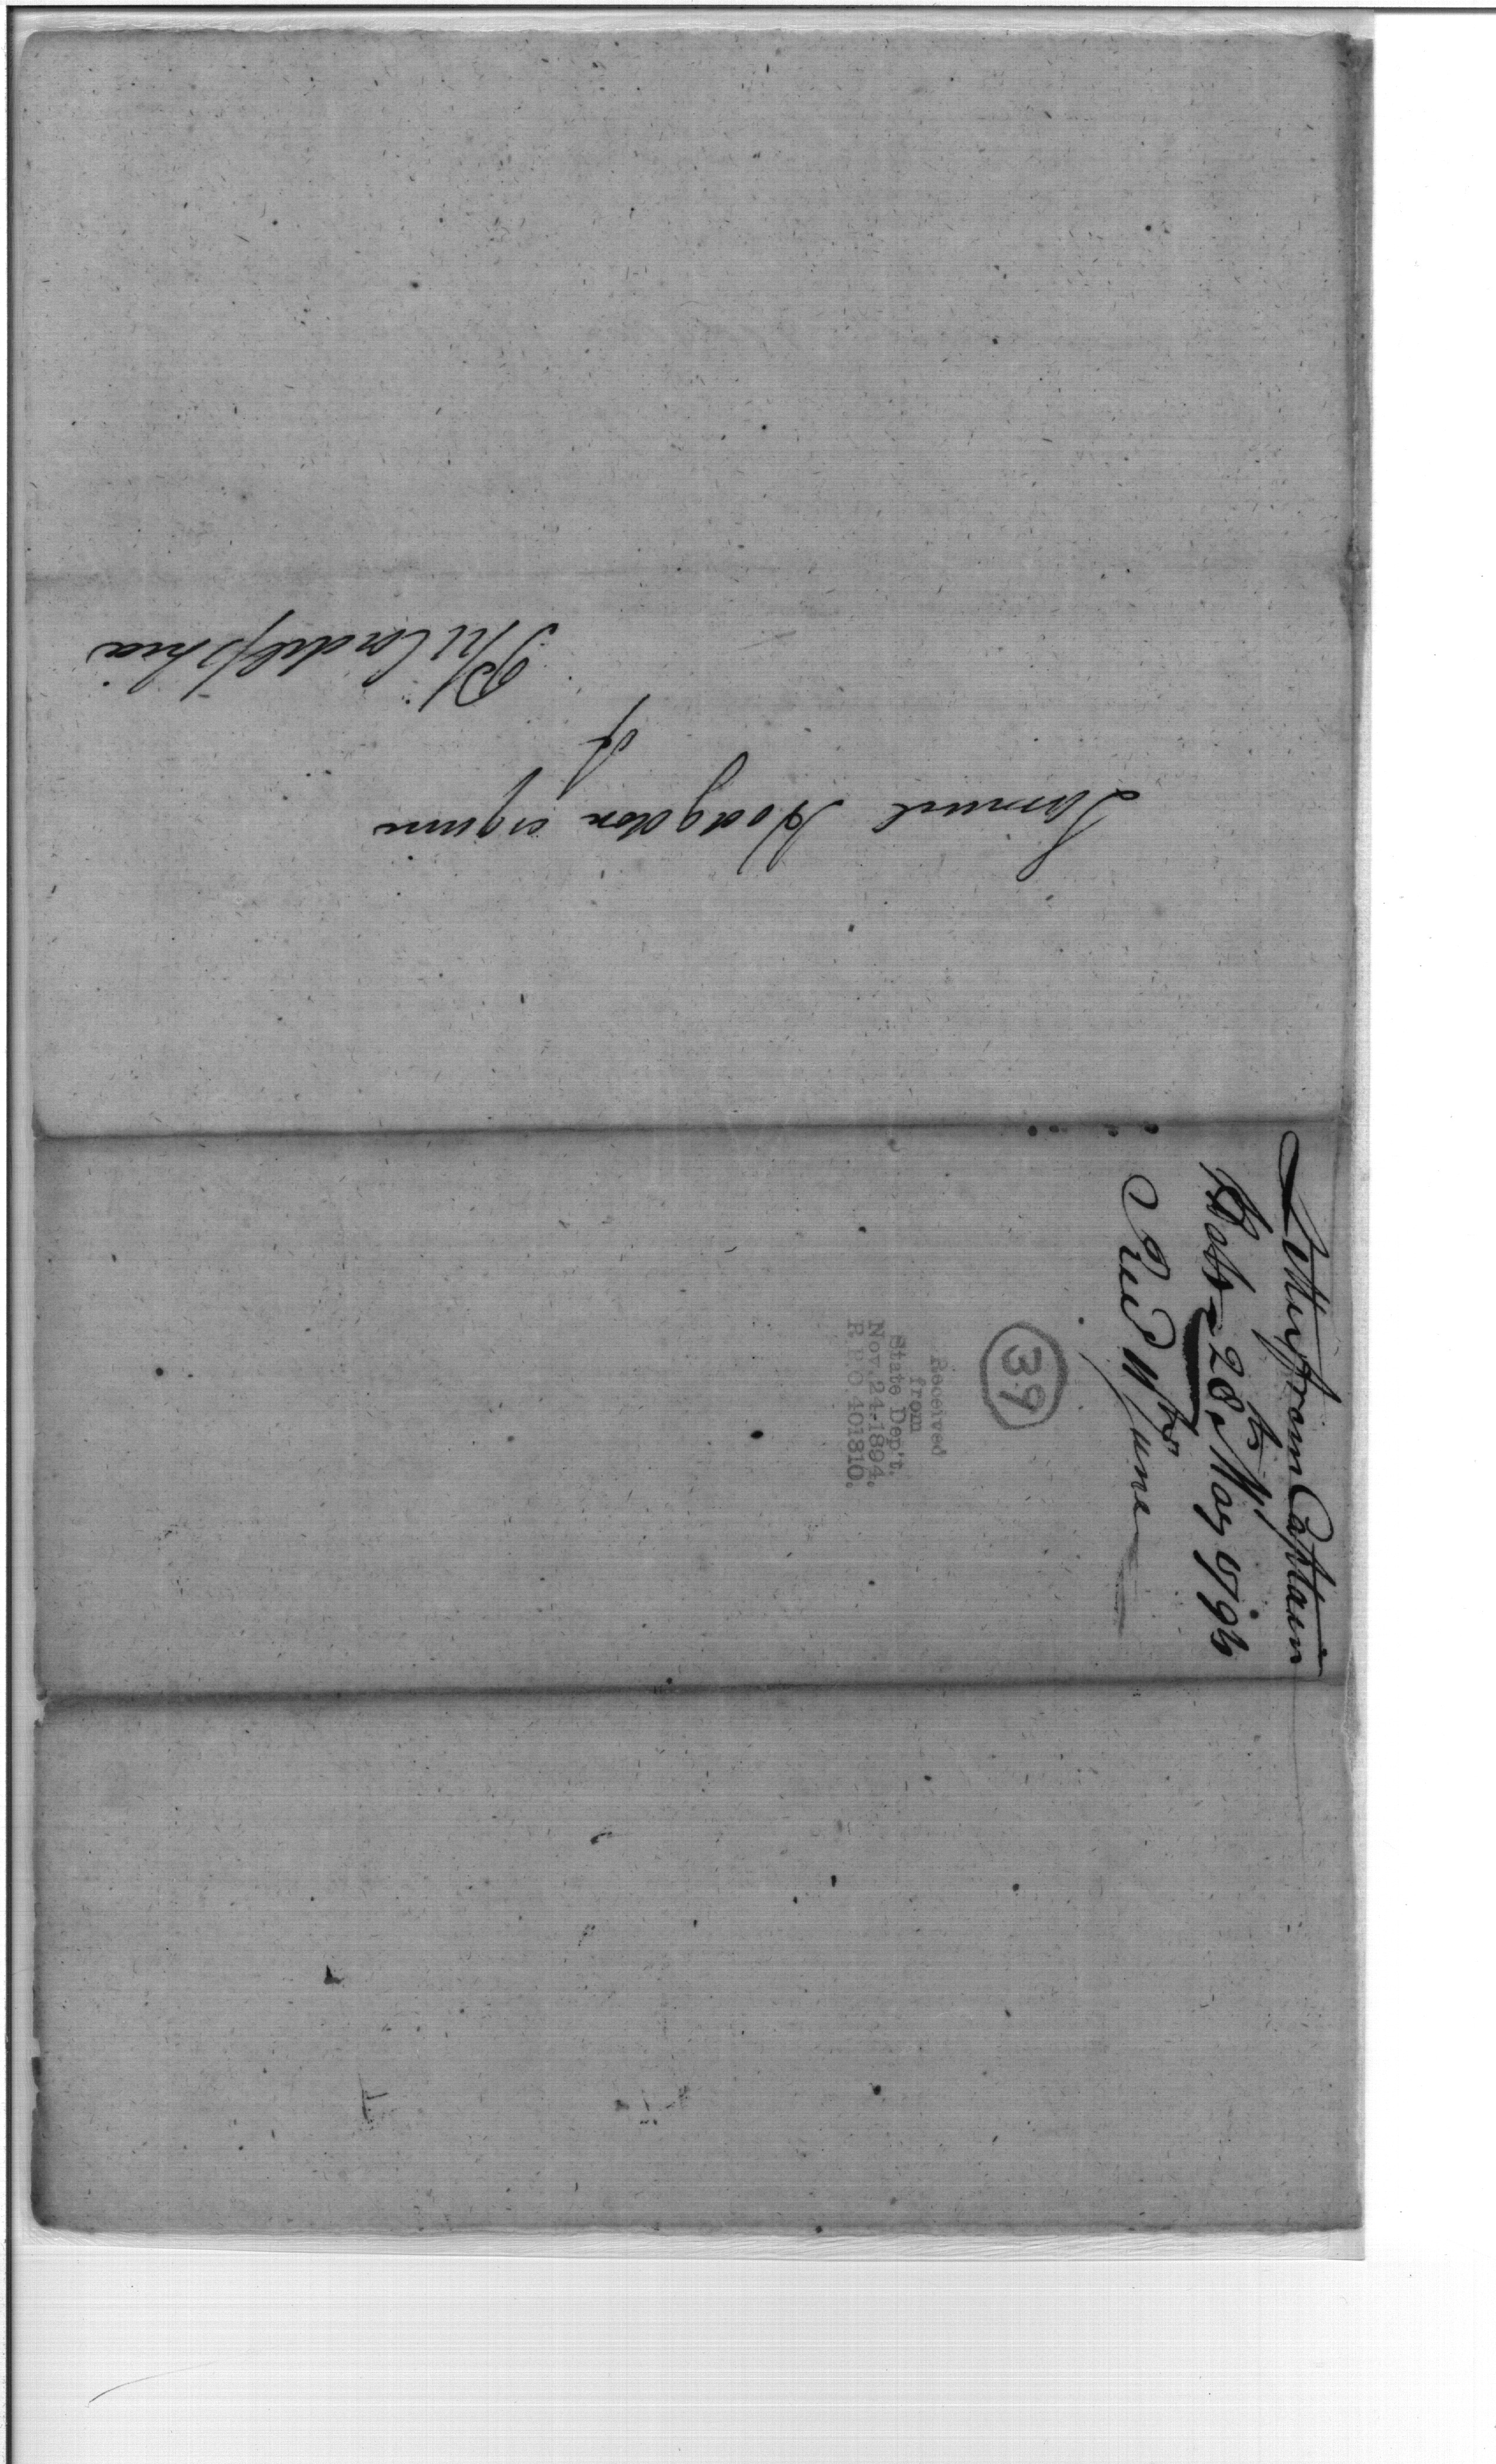 Samuel Hodgdon esquire
of
Philadelphia
Letter from Captain
28th May 1796
Recd 11th June
39
Received
from
State Dep't.
Nov. 24-1894.
R. P. O. 401810.